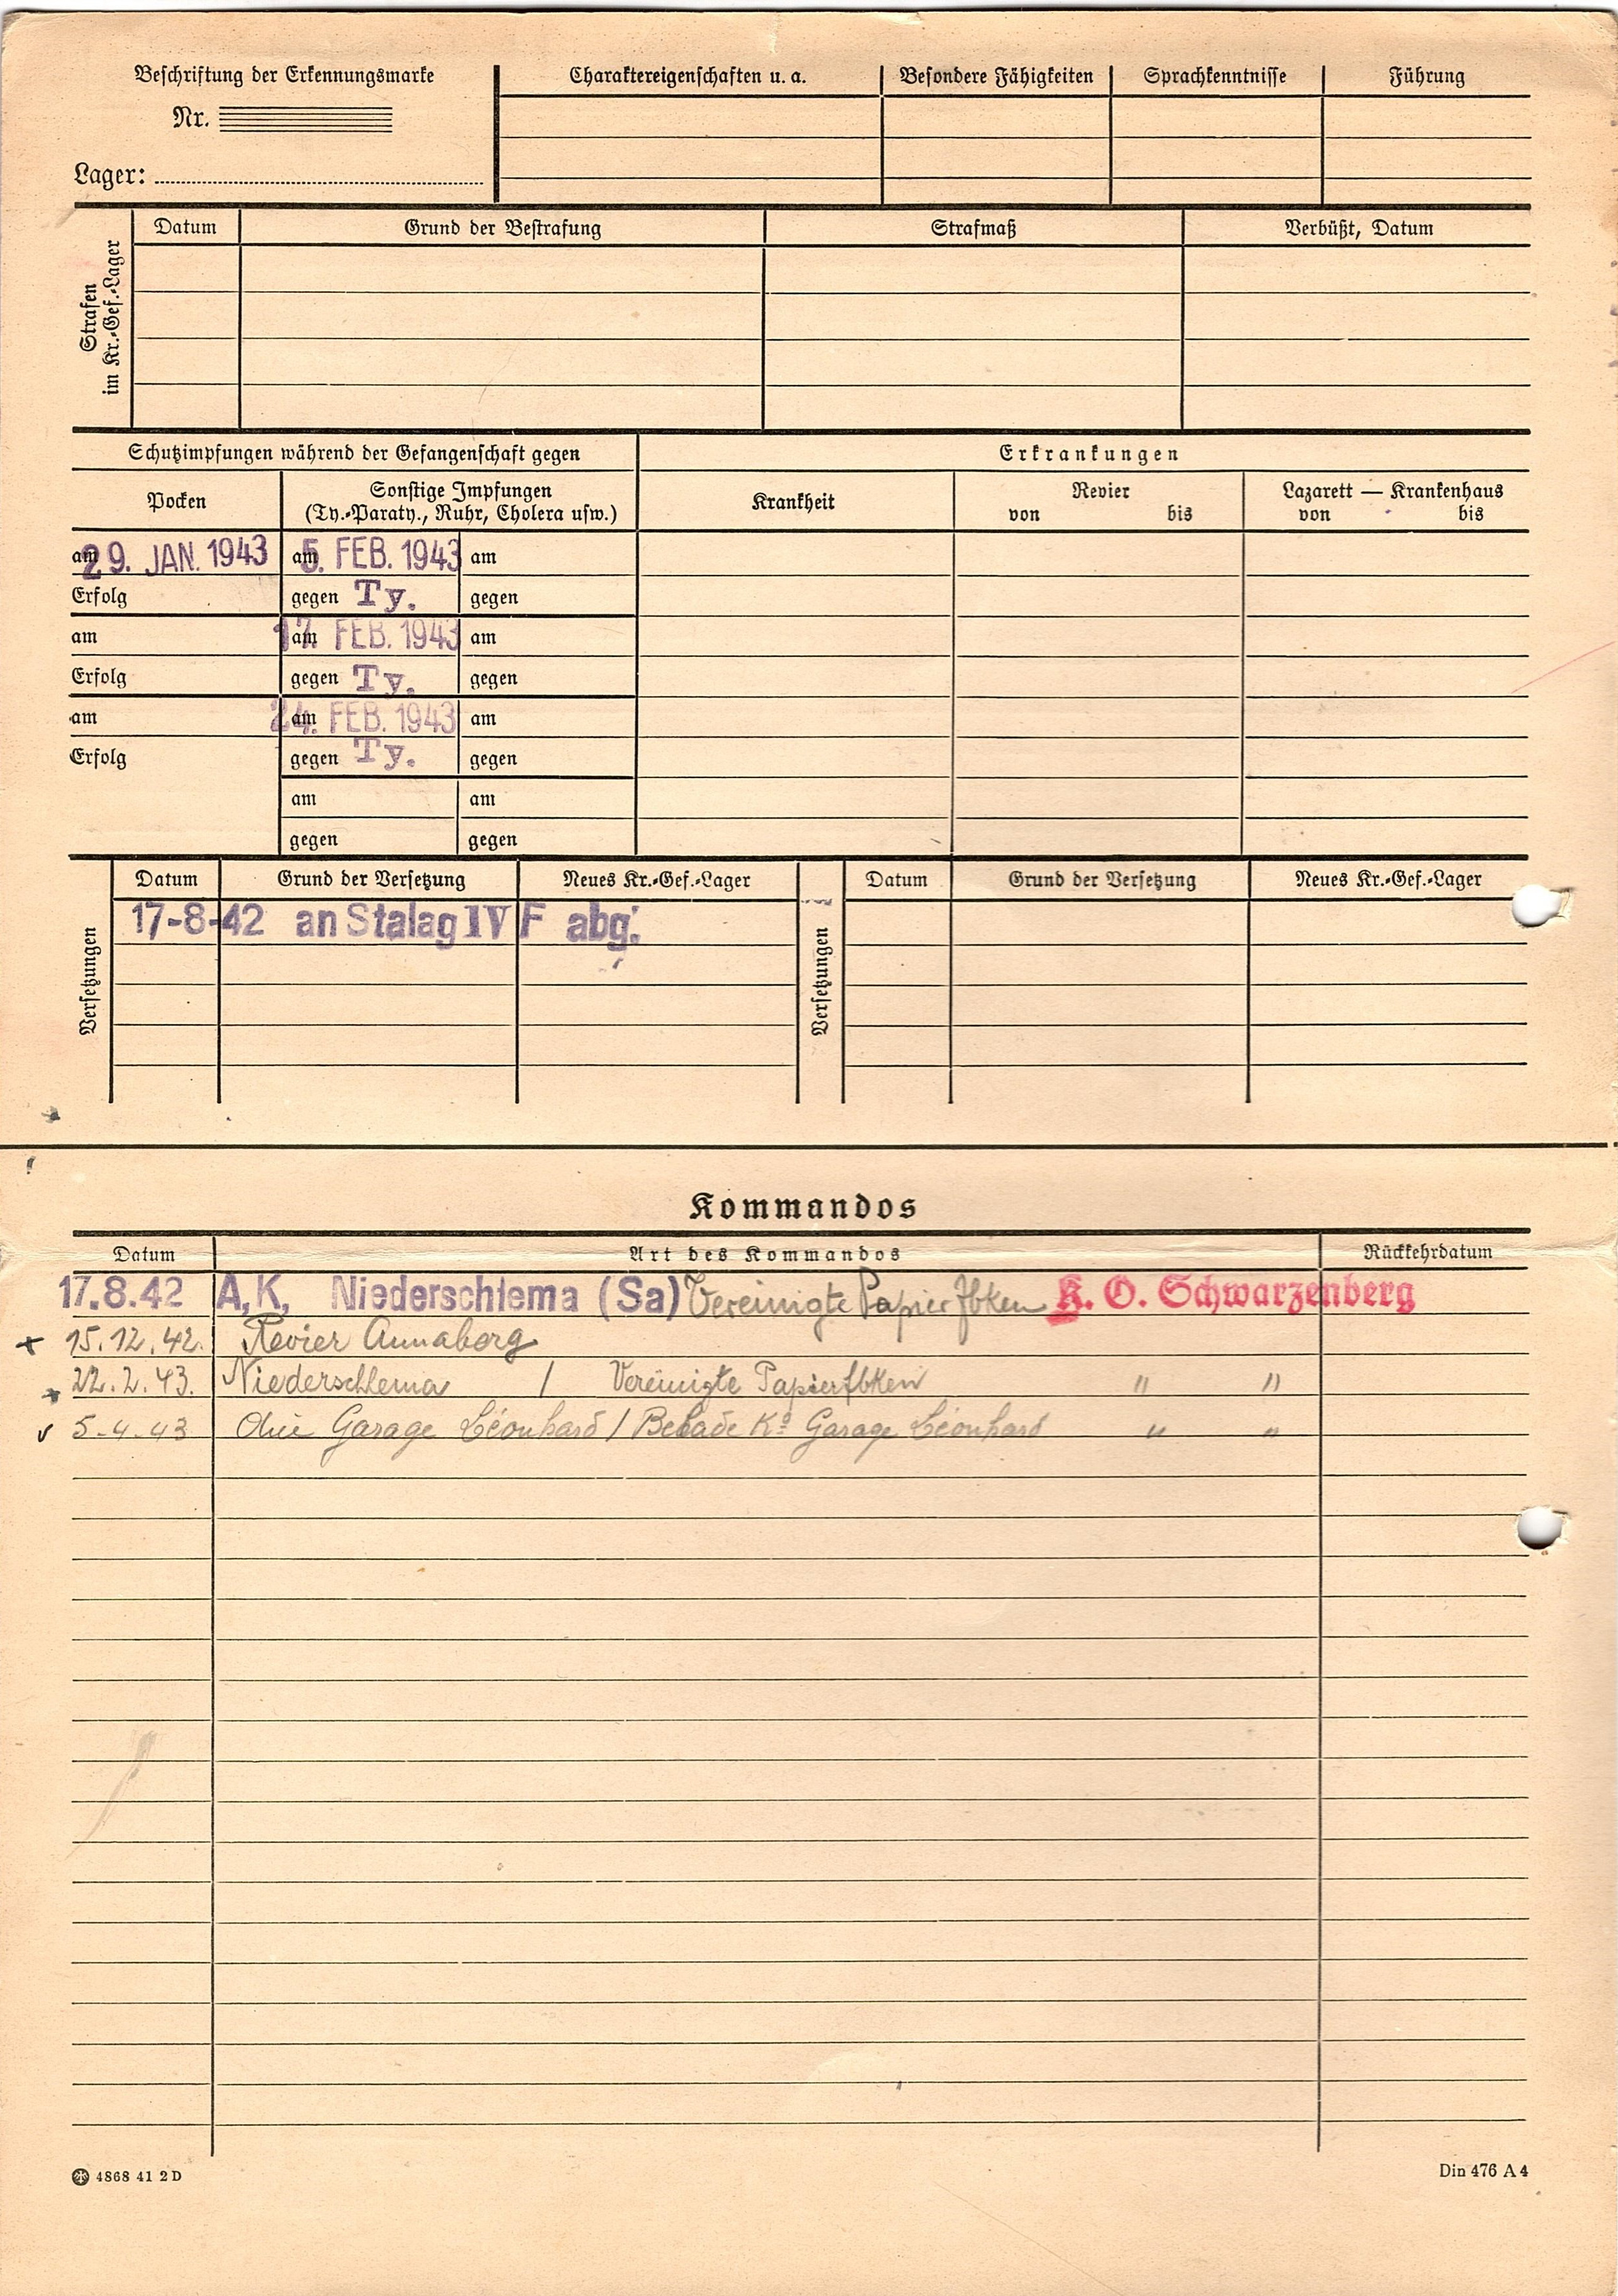 Beschriftung der Erkennungsmarke
Nr.
Lager:
Charaktereigenschaften u. a. Besondere Fähigkeiten Sprachkenntnisse Führung
Strafen
im Kr.-Gef.-Lager
Datum Grund der Bestrafung Strafmaß Verbüßt, Datum
Schutzimpfungen während der Gefangenschaft gegen Erkrankungen
Pocken
Sonstige Impfungen
(Ty.-Paraty., Ruhr, Cholera usw.)
Krankheit
Revier
von bis
Lazarett — Krankenhaus
von bis
am 29. JAN. 1943 am 5. FEB. 1943 am
Erfolg gegen Ty. gegen
am am 17. FEB. 1943 am
Erfolg gegen Ty. gegen
am am 24. FEB. 1943 am
Erfolg gegen Ty. gegen
am am
gegen gegen
Versetzungen
Datum Grund der Versetzung Neues Kr.-Gef.-Lager
17-8-42 an Stalag IV F abg.
Versetzungen
Datum Grund der Versetzung Neues Kr.-Gef.-Lager
Kommandos
Datum Art des Kommandos Rückkehrdatum
17.8.42 A,K, Niederschlema (Sa) Vereinigte Papierfbken K. O. Schwarzenberg
15.12.42. Revier Annaberg
22.2.43. Niederschlema / Vereinigte Papierfbken " "
5-4-43 Garage Léonhard / Garage Léonhard " "
4868 41 2 D
Din 476 A 4